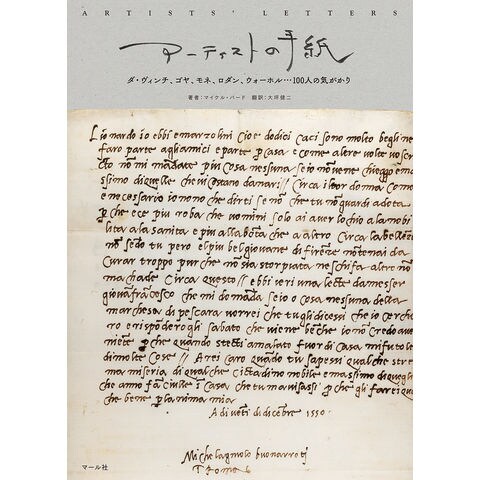 ARTISTS' LETTERS
アーティストの手紙
ダ・ヴィンチ、ゴヤ、モネ、ロダン、ウォーホル…100人の気がかり
著者：マイケル・バード 翻訳：大坪健二
Lionardo io ebbi e marzolini cioe dodici caci sono molto begli ne
faro parte agli amici e parte p casa e come altre volte vo scr
cto no mi mandate piu cosa nessuna se io no ve ne chieggo e ma
ssimo di quelle che vi costano danari // Circa il tor donna como
e necessario io no no che dirti se no che tu no guardi a dota
p che e ce piu roba che uomini solo ai aver lochio a la nobi
lita a la sanita e piu alla bota che a altro Circa la belleza
no sedo tu pero el piu bel giovane di firenze no te nai da
curar troppo pur che no sia storpiata ne schifa altro no
m achade Circa questo // ebbi ieri una lecte da messer
giovafracesco che mi domada se io o cosa nessuna della
marchesa di pescara vorrei che tu gli dicessi che io cerche
ro e rispoderogli sabato che viene be che io no credo aver
niete p che quando stecti amalato fuor di casa mi fu tolto
di molte cose // Arei caro quado tu sapessi qual che stre
ma miseria di qualche cictadino nobile e massimo di quegli
che anno faciulle i casa che tu m avisassi p che gli farei qua
che bene p l anima mia
A di veti di dicebre 1550
Michelagniolo buonarroti
Roma
マール社